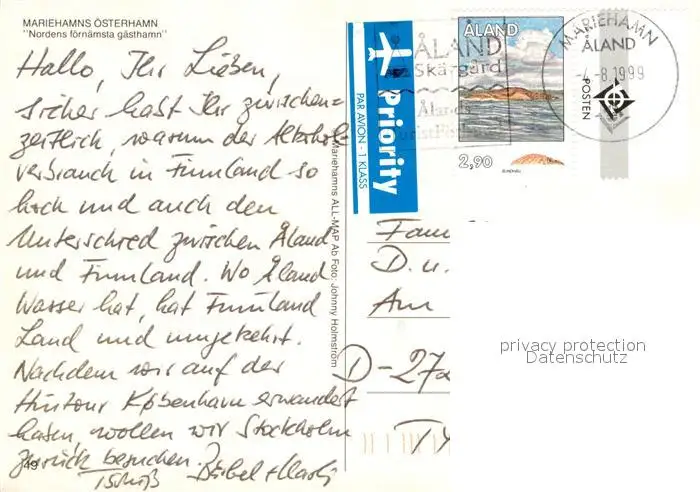 MARIEHAMNS ÖSTERHAMN
"Nordens förnämsta gästhamn"
Hallo, Ihr Lieben,
sicher habt Ihr zwischen=
zeitlich, warum der Alkohol
verbrauch in Finnland so
hoch und auch den
Unterschied zwischen Åland
und Finnland. Wo Åland
Wasser hat, hat Finnland
Land und umgekehrt.
Nachdem wir auf der
Hintour København erwandert
haben, wollen wir Stockholm
zurück besuchen.
Tschüß Bärbel +
49
Mariehamns ALL-MAP Ab Foto: Johnny Holmström
Priority
PAR AVION - 1 KLASS
ÅLAND
Skärgård
Ålands
ÅLAND
2,90
MARIEHAMN
ÅLAND
-8.1999
POSTEN
Fam
D. u.
Am
D-27
privacy protection
Datenschutz